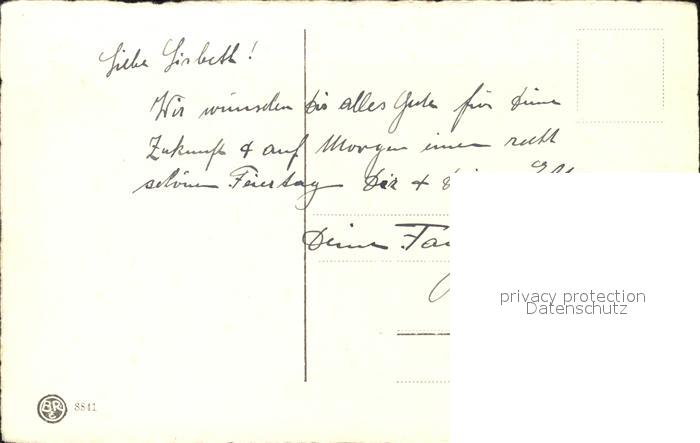 Liebe Lisbeth!
Wir wünschen Dir alles Gute für Deine
Zukunft & auf Morgen einen recht
schönen Feiertag Dir &
Deine
privacy protection
Datenschutz
BR
8841